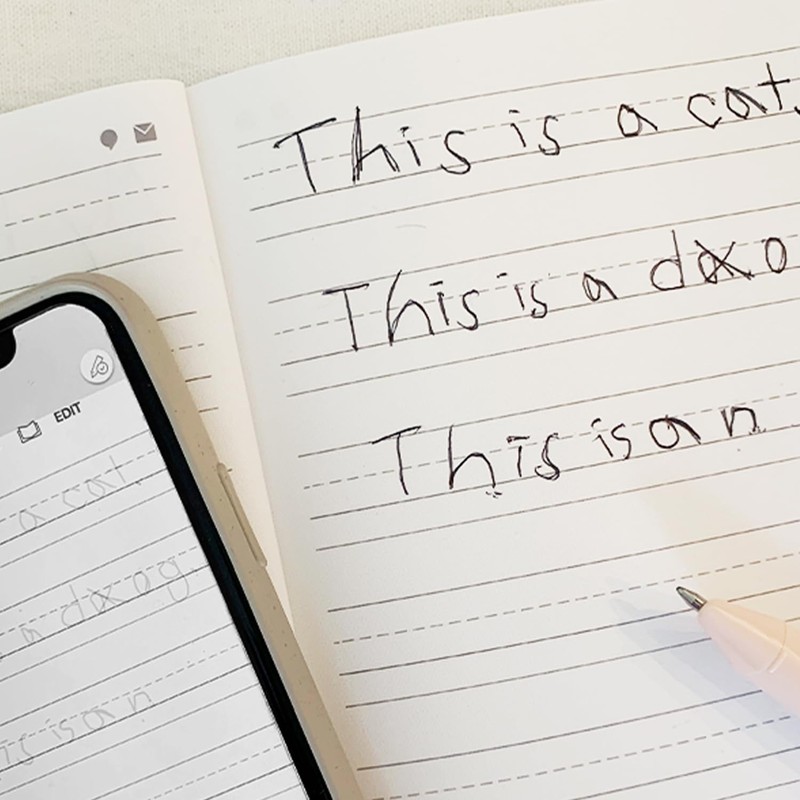 This is a cat.
This is a do
This is an
EDIT
a cat.
a dog
is is an